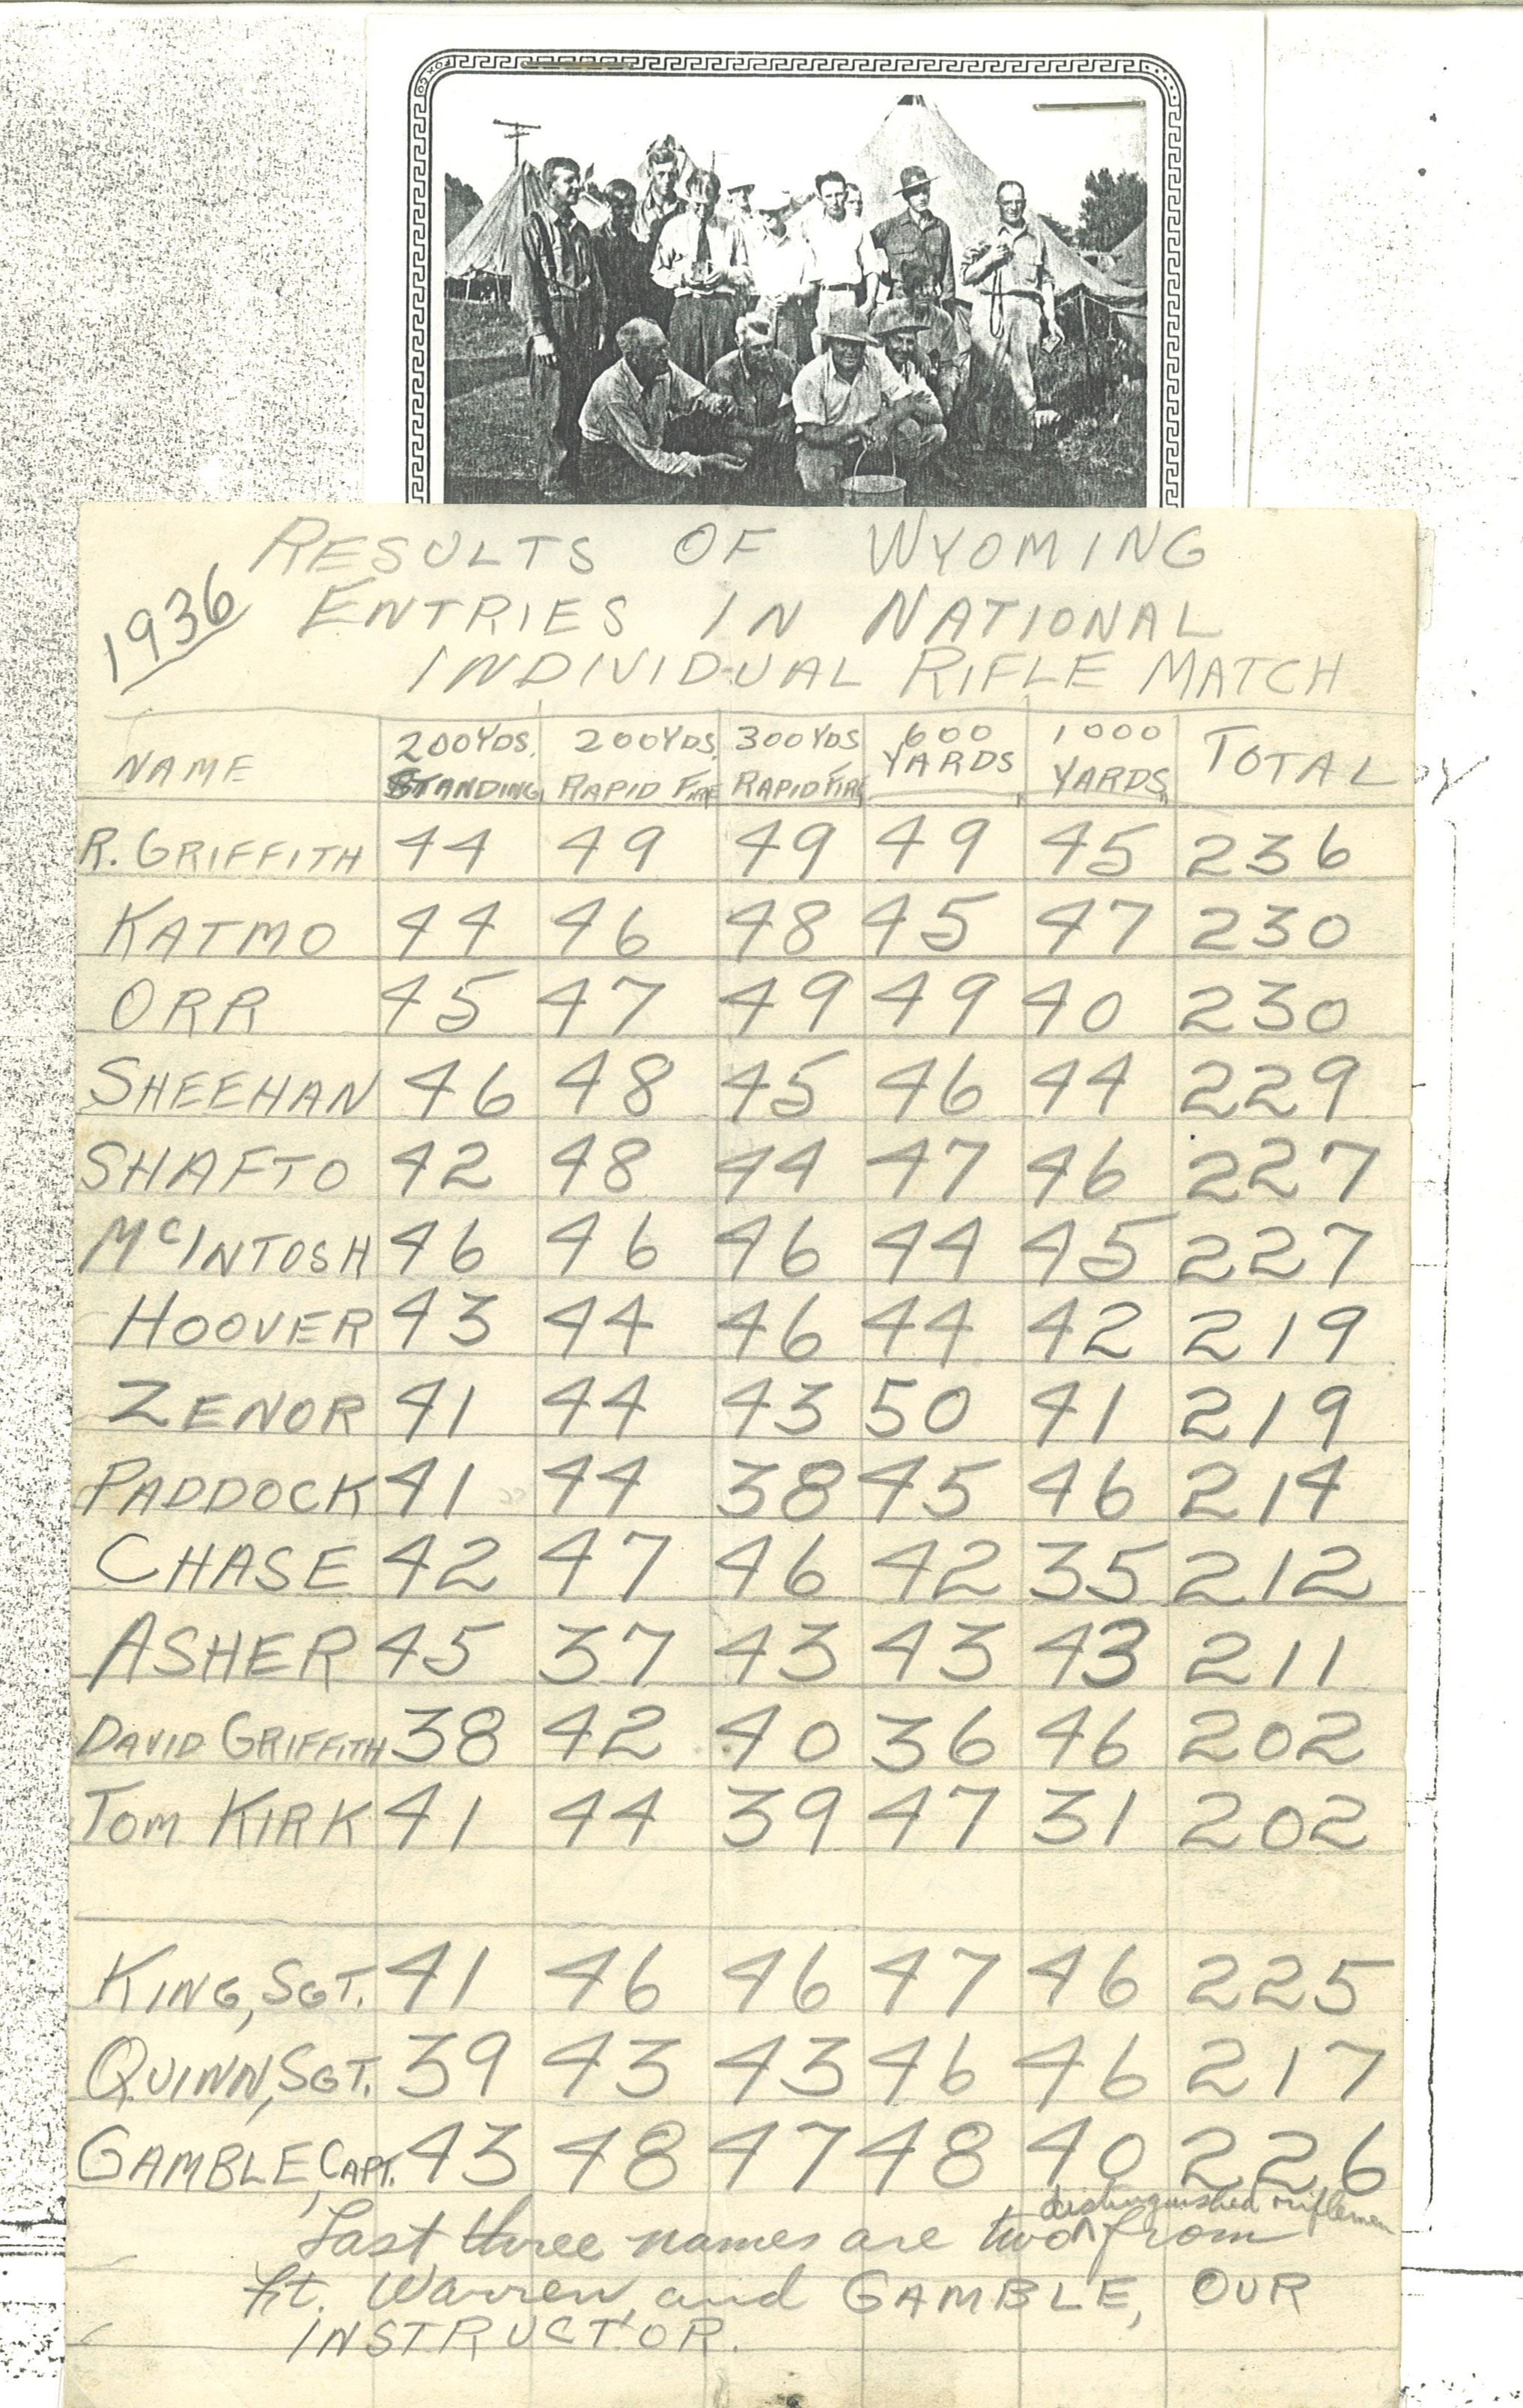 FOX CO
RESULTS OF WYOMING
1936 ENTRIES IN NATIONAL
INDIVIDUAL RIFLE MATCH
NAME 200 YDS. STANDING 200 YDS. RAPID FIRE 300 YDS RAPID FIRE 600 YARDS 1000 YARDS TOTAL
R. GRIFFITH 44 49 49 49 45 236
KATMO 44 46 48 45 47 230
ORR 45 47 49 49 40 230
SHEEHAN 46 48 45 46 44 229
SHAFTO 42 48 44 47 46 227
McINTOSH 46 46 46 44 45 227
HOOVER 43 44 46 44 42 219
ZENOR 41 44 43 50 41 219
PADDOCK 41 44 38 45 46 214
CHASE 42 47 46 42 35 212
ASHER 45 37 43 43 43 211
DAVID GRIFFITH 38 42 40 36 46 202
TOM KIRK 41 44 39 47 31 202
KING, SGT. 41 46 46 47 46 225
QUINN, SGT. 39 43 43 46 46 217
GAMBLE, CAPT. 43 48 47 48 40 226
Last three names are two distinguished riflemen from
Ft. Warren, and GAMBLE, OUR
INSTRUCTOR.